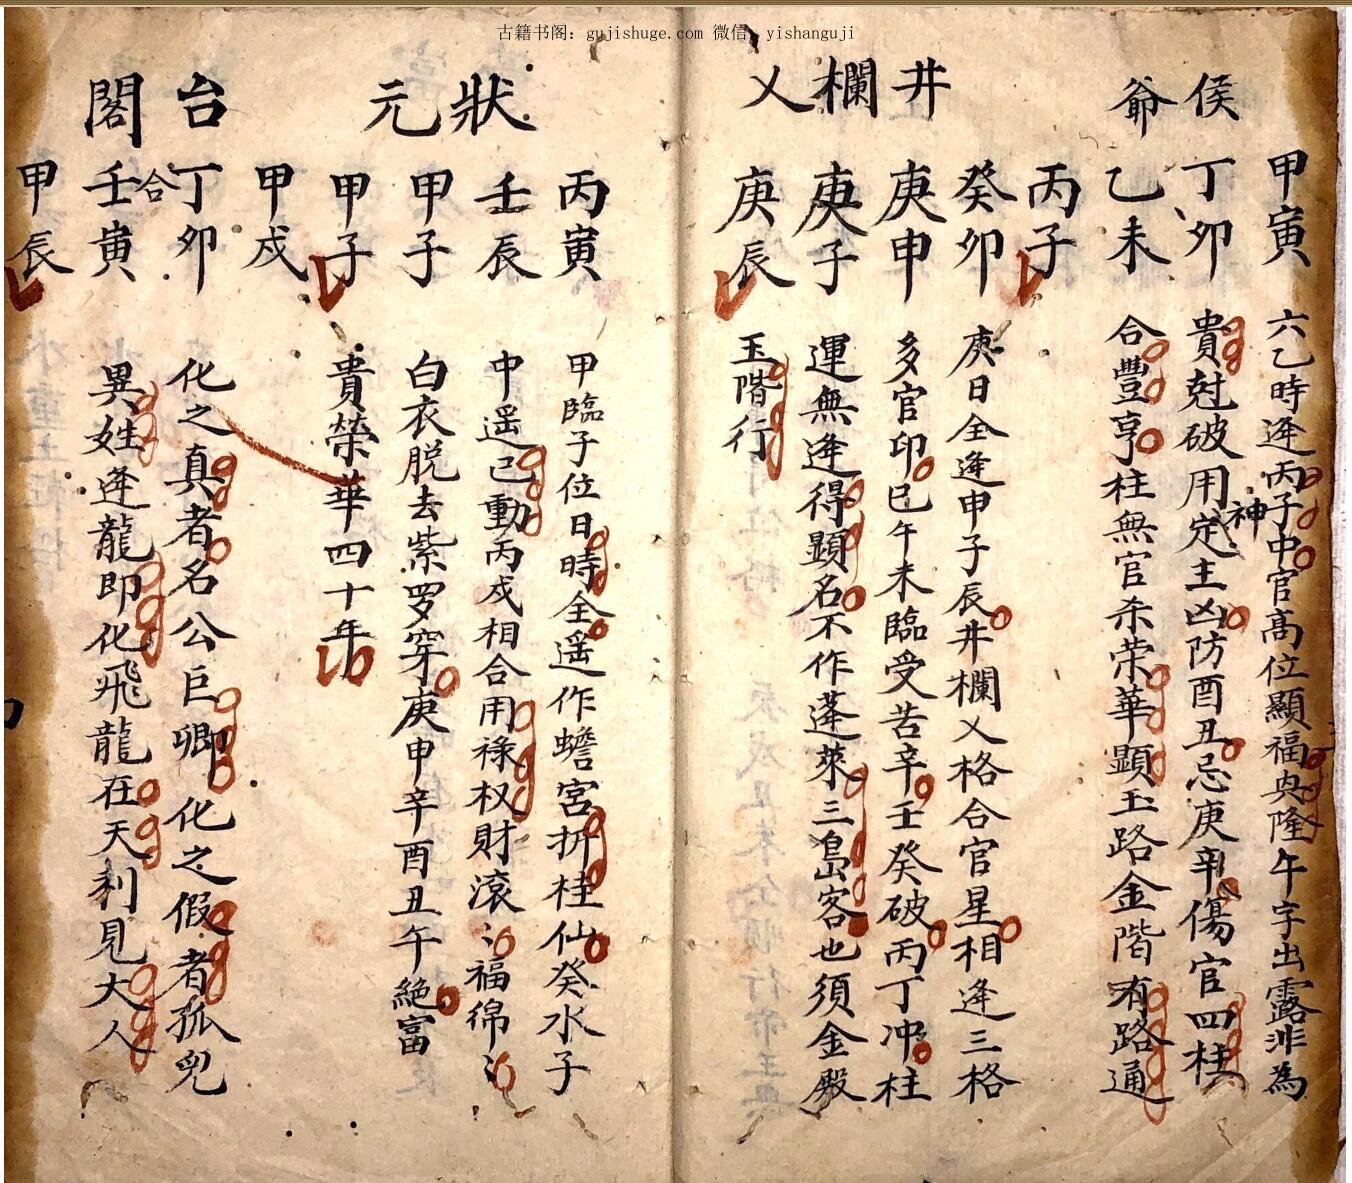 古籍书阁：gujishuge.com 微信：yishanguji
侯爺
甲寅 六乙時逢丙子中官高位顯福興隆午字出露非為
丁卯 貴尅破用神定主凶防酉丑忌庚辛傷官四柱
乙未 合豐亨柱無官杀荣華顯玉路金階有路通
丙子
井欄乂
癸卯 庚日全逢申子辰井欄乂格合官星相逢三格
庚申 多官印巳午未臨受苦辛壬癸破丙丁冲柱
庚子 運無逢得顕名不作蓬萊三島客也須金殿
庚辰 玉階行
狀元
丙寅 甲臨子位日時全遥作蟾宮折桂仙癸水子
壬辰 中遥已動丙戍相合用祿权財滚〻福綿〻
甲子 白衣脱去紫罗穿庚申辛酉丑午絶富
甲子 貴榮華四十年
甲戍
台閣
丁卯 化之真者名公巨卿化之假者孤兒
壬寅 合 異姓逢龍即化飛龍在天利見大人
甲辰